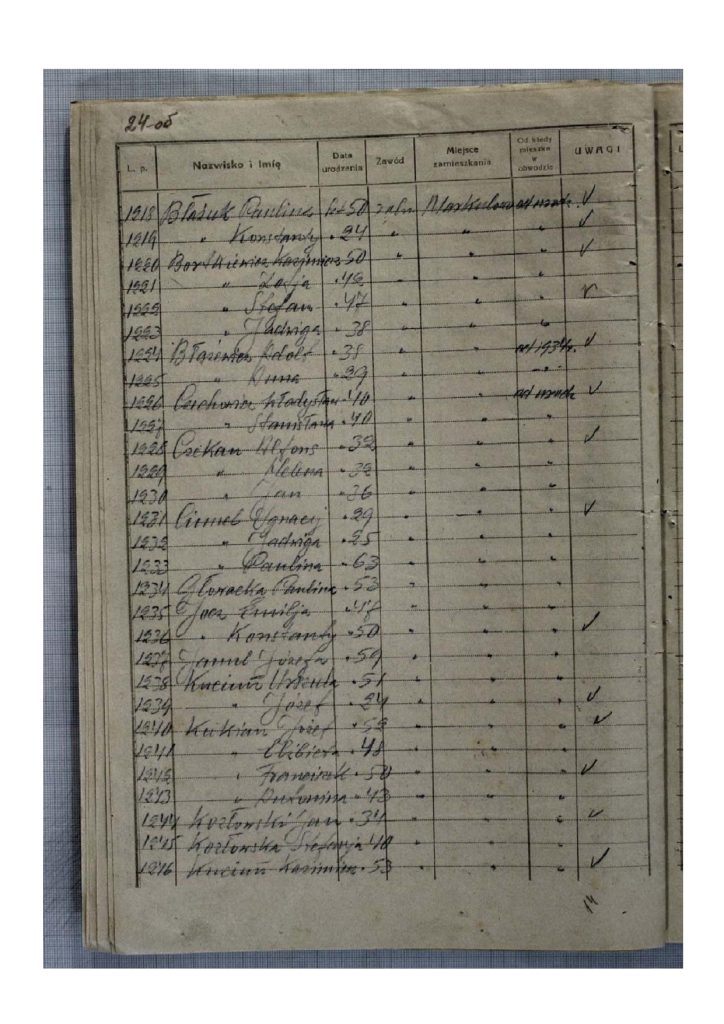 24-об
L. p. Nazwisko i Imię Data urodzenia Zawód Miejsce zamieszkania Od kiedy mieszka w obwodzie UWAGI
1218 Błażuk Paulina lat 50 " od urodz. ✓
1219 " Konstanty " 24 " " " ✓
1220 Bortkiewicz Kazimierz " 50 " " " ✓
1221 " Zofja " 42 " " "
1222 " Stefan " 47 " " " ✓
1223 " Jadwiga " 38 " " "
1224 Błażewicz Adolf " 38 " " od 1934 r. ✓
1225 " Anna " 29 " " "
1226 Władysław " 40 " " od urodz ✓
1227 " Stanisława " 40 " " "
1228 Czekan Alfons " 32 " " " ✓
1229 " Helena " 32 " " "
1230 " Jan " 36 " " "
1231 Ignacy " 29 " " " ✓
1232 " Jadwiga " 25 " " "
1233 " Paulina " 63 " " "
1234 Głowacka Paulina " 53 " " "
1235 Emilja " 47 " " "
1236 " Konstanty " 50 " " " ✓
1237 Józefa " 59 " " "
1238 Urszula " 51 " " "
1239 " Józef " 24 " " " ✓
1240 Kukian Józef " 52 " " " ✓
1241 " Elżbieta " 48 " " "
1242 " Franciszek " 50 " " " ✓
1243 " Antonina " 43 " " "
1244 Kozłowski Jan " 34 " " " ✓
1245 Kozłowska Stefanja " 40 " " "
1246 Kazimierz " 53 " " " ✓
14